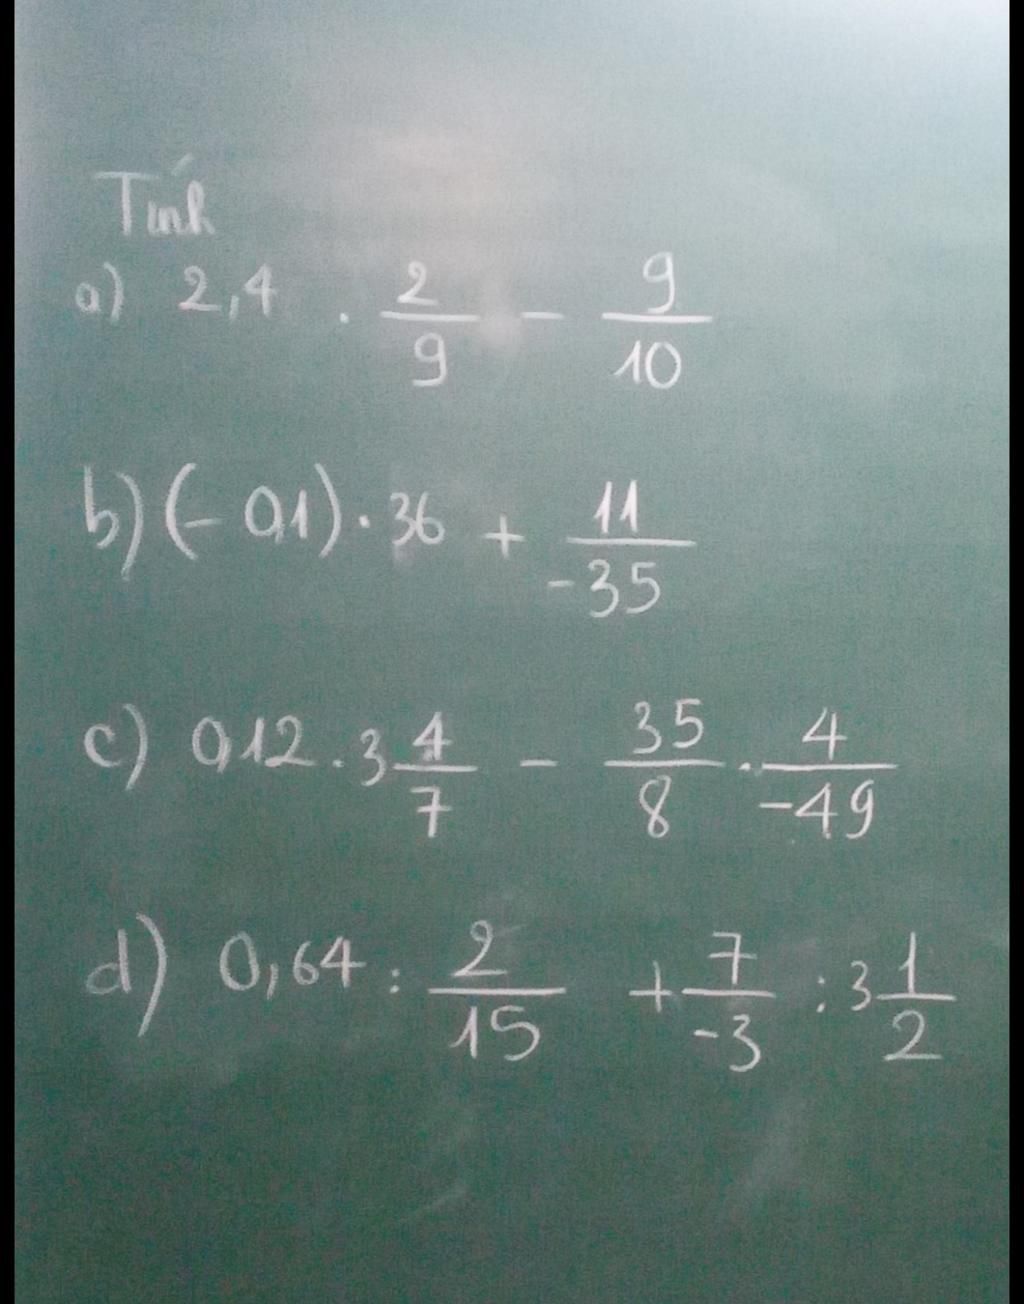 Tính
a) 2,4 . 2/9 - 9/10
b) (- 0,1) . 36 + 11/-35
c) 0,12 . 3 4/7 - 35/8 . 4/-49
d) 0,64 : 2/15 + 7/-3 : 3 1/2